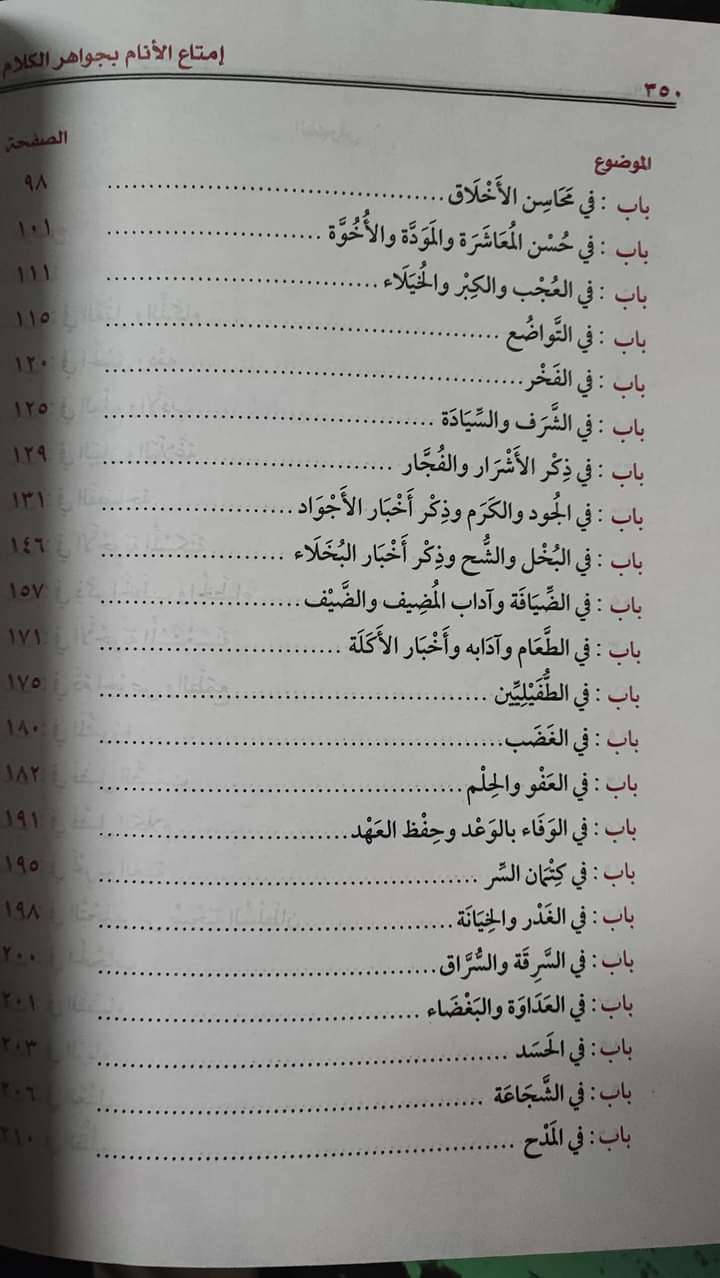 ٣٥٠ إمتاع الأنام بجواهر الكلام
الموضوع الصفحة
باب : في مَحَاسِن الأَخْلَاق ........................................ ٩٨
باب : في حُسْن المُعَاشَرَة والمَوَدَّة والأُخُوَّة ........................... ١٠١
باب : في العُجْب والكِبْر والخُيَلَاء ................................. ١١١
باب : في التَّواضُع ................................................ ١١٥
باب : في الفَخْر .................................................. ١٢٠
باب : في الشَّرَف والسِّيَادَة ........................................ ١٢٥
باب : في ذِكْر الأَشْرَار والفُجَّار ................................... ١٢٩
باب : في الجُود والكَرَم وذِكْر أَخْبَار الأَجْوَاد ....................... ١٣١
باب : في البُخْل والشُّح وذِكْر أَخْبَار البُخَلَاء ...................... ١٤٦
باب : في الضِّيَافَة وآداب المُضِيف والضَّيْف ........................ ١٥٧
باب : في الطَّعَام وآدَابه وأَخْبَار الأَكَلَة ............................. ١٧١
باب : في الطُّفَيْلِيِّين ............................................... ١٧٥
باب : في الغَضَب ................................................ ١٨٠
باب : في العَفْو والحِلْم ............................................ ١٨٢
باب : في الوَفَاء بالوَعْد وحِفْظ العَهْد .............................. ١٩١
باب : في كِتْمَان السِّر ............................................. ١٩٥
باب : في الغَدْر والخِيَانَة ........................................... ١٩٨
باب : في السَّرِقَة والسُّرَّاق ........................................ ٢٠٠
باب : في العَدَاوَة والبَغْضَاء ....................................... ٢٠١
باب : في الحَسَد ................................................. ٢٠٣
باب : في الشَّجَاعَة ............................................... ٢٠٦
باب : في المَدْح .................................................. ٢١٠